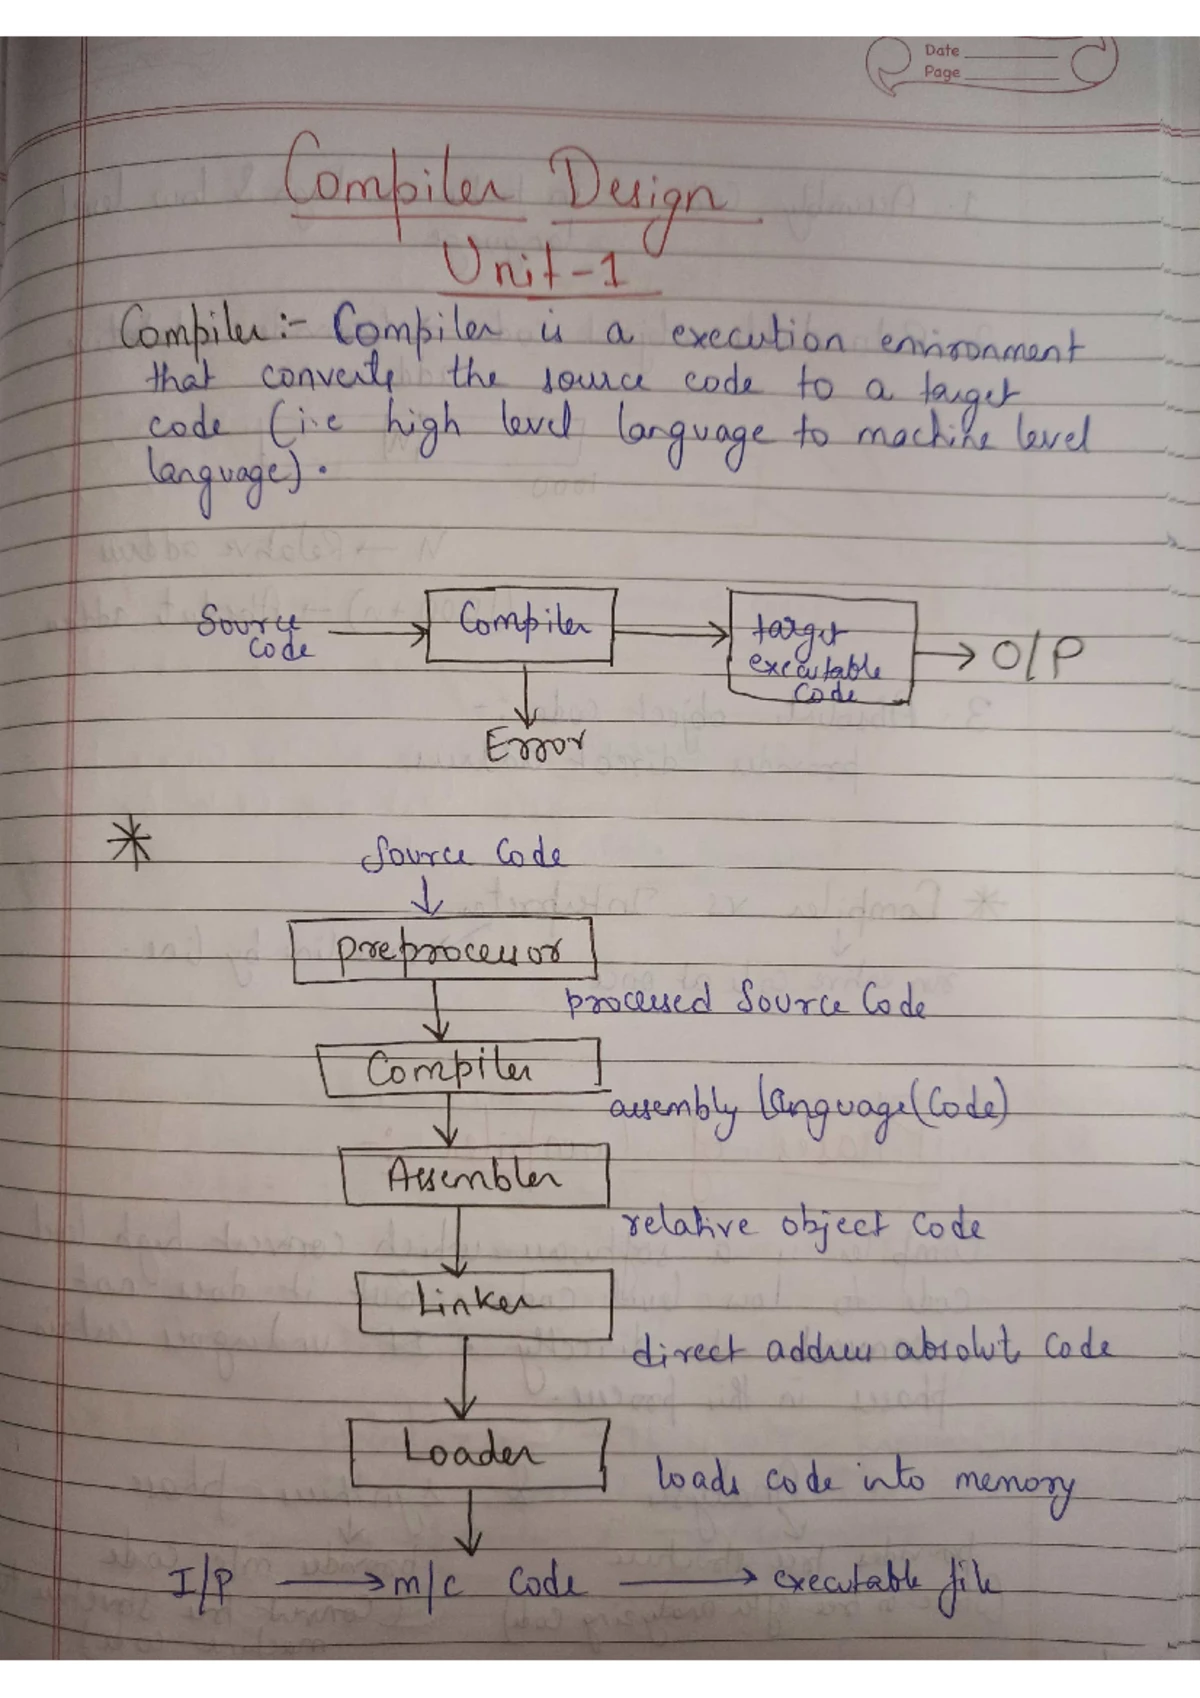 Date
Page
Compiler Design
Unit-1
Compiler:- Compiler is a execution environment
that converts the source code to a target
code (i.e high level language to machine level
language).
Source Code
Compiler
target executable Code
O/P
Error
*
Source Code
preprocessor
processed Source Code
Compiler
assembly language(Code)
Assembler
relative object Code
Linker
direct address absolute Code
Loader
loads code into memory
I/P m/c Code executable file